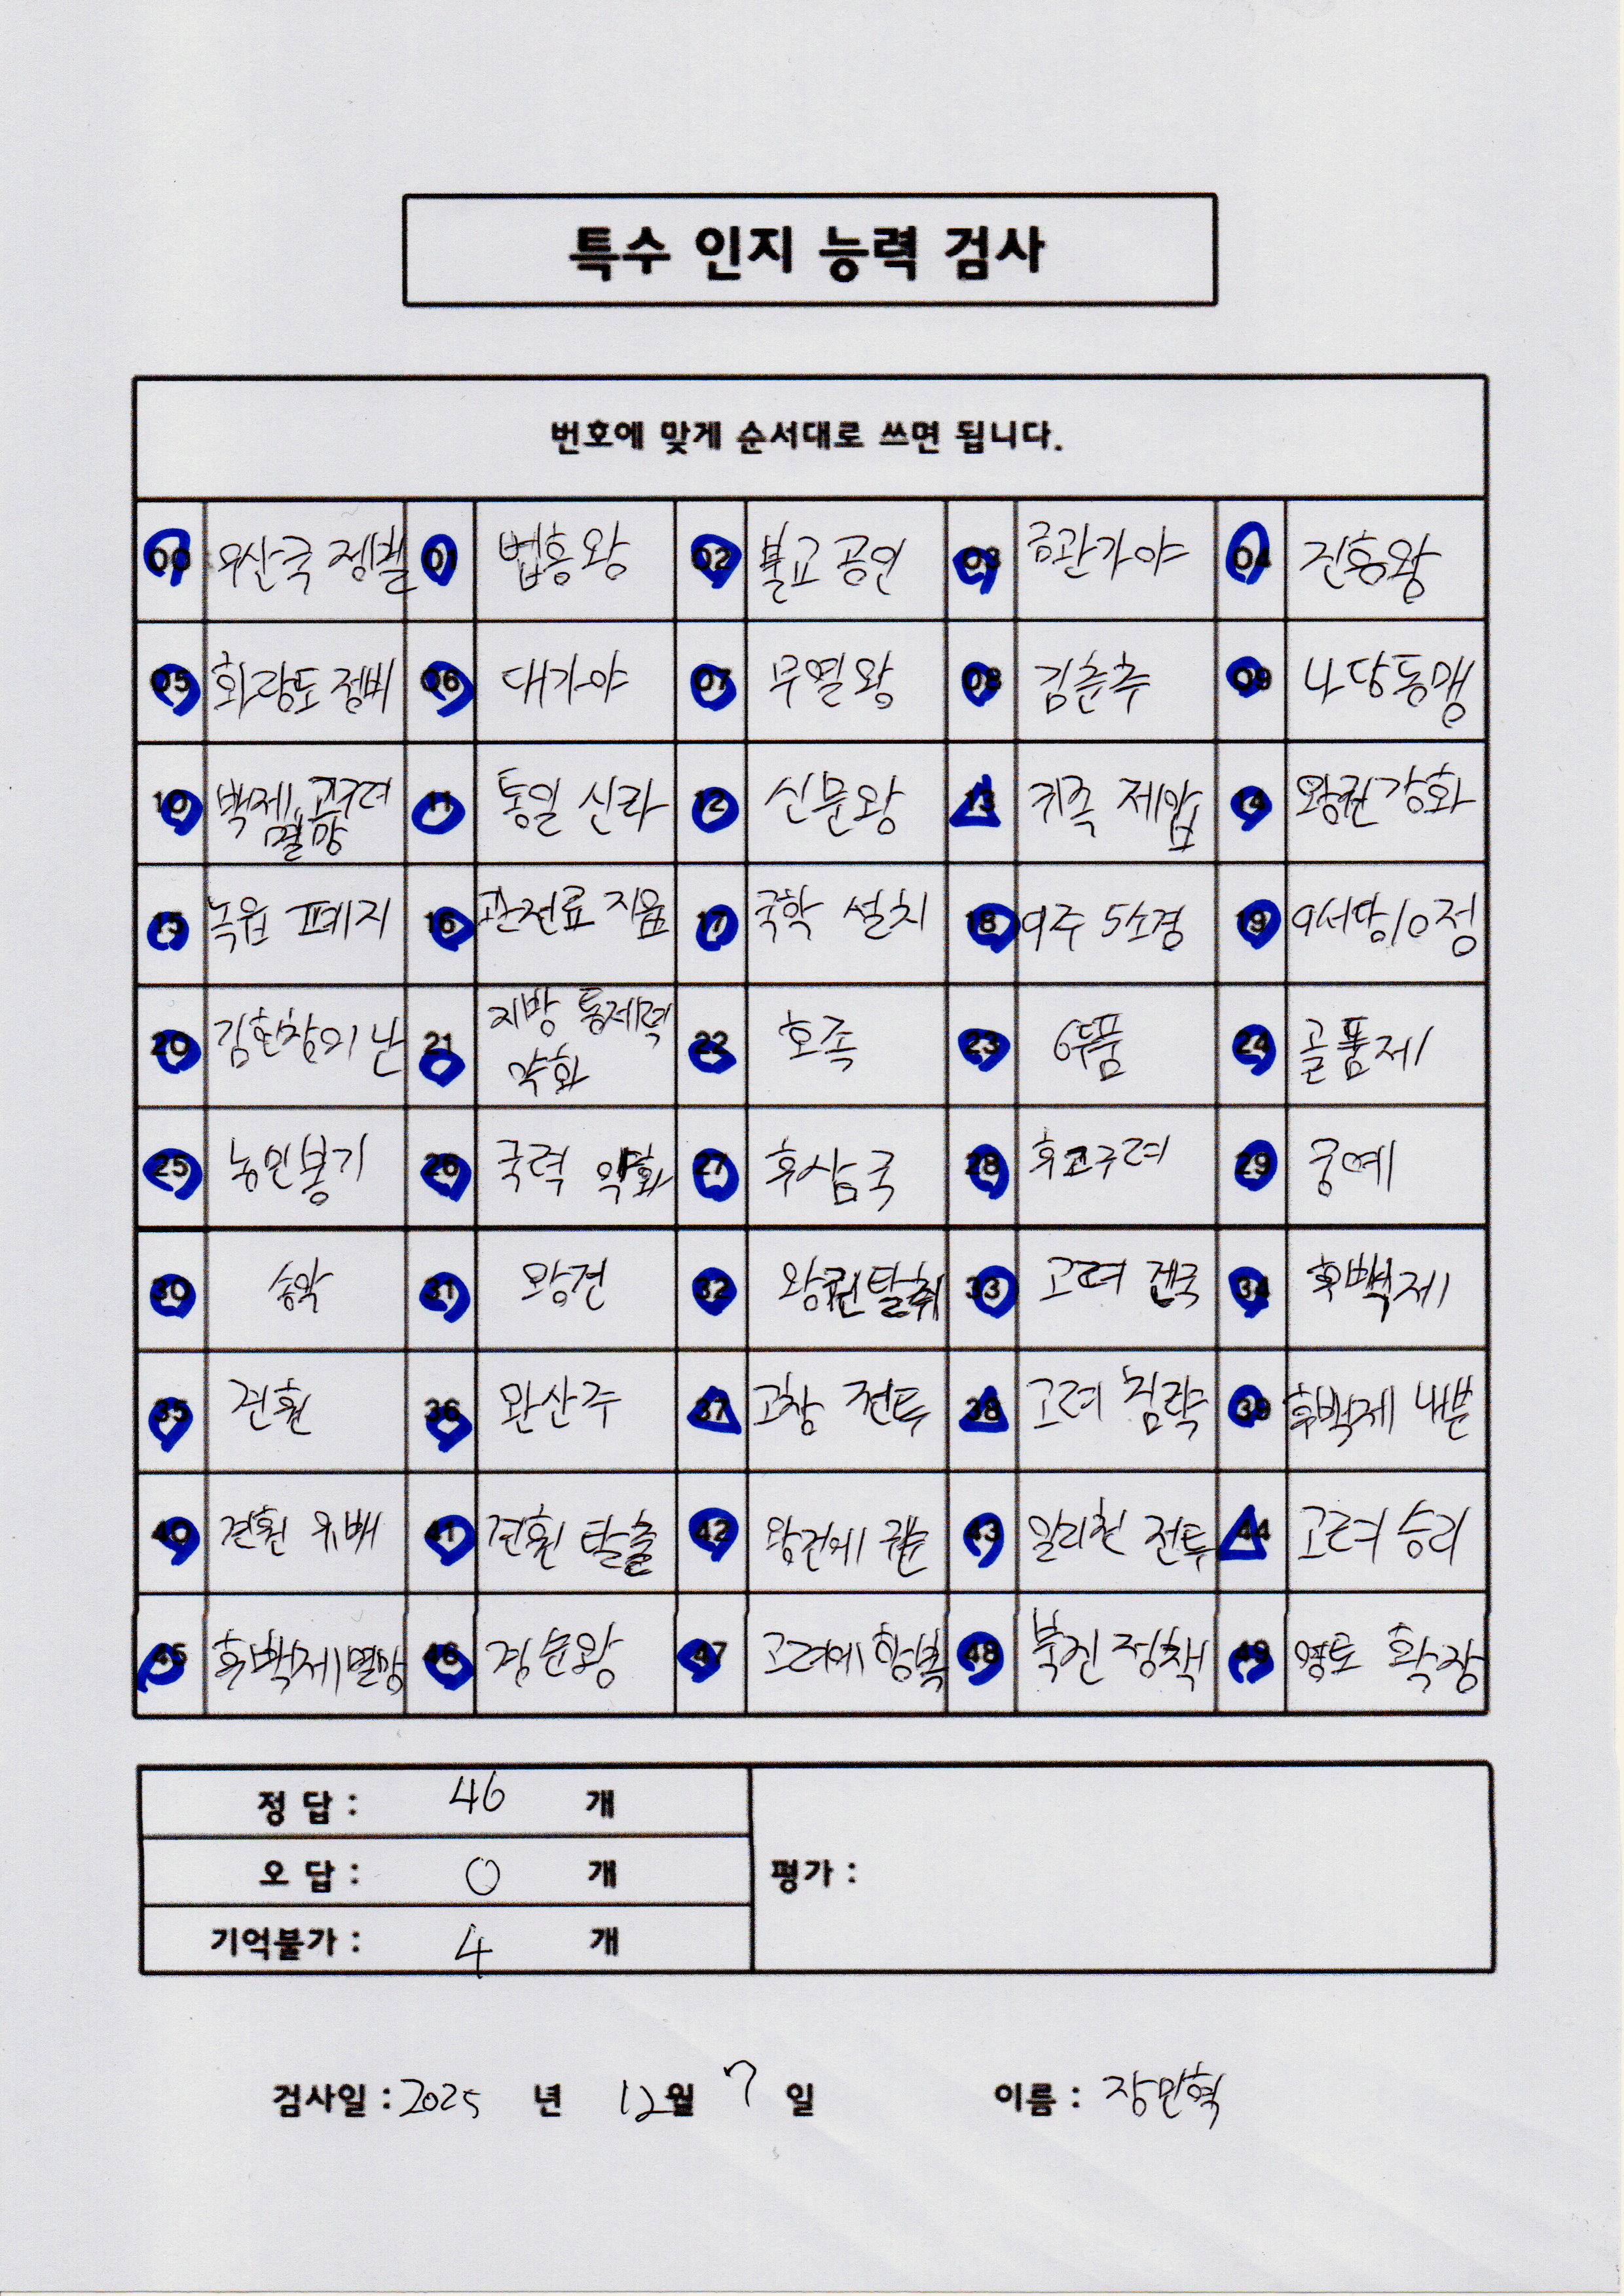 특수 인지 능력 검사
번호에 맞게 순서대로 쓰면 됩니다.
00 우산국 정벌 01 법흥왕 02 불교 공인 03 금관가야 04 진흥왕
05 화랑도 정비 06 대가야 07 무열왕 08 김춘추 09 나당동맹
10 백제, 고구려 멸망 11 통일 신라 12 신문왕 13 귀족 제압 14 왕권 강화
15 녹읍 폐지 16 관전료 지읍 17 국학 설치 18 9주 5소경 19 9서당 10정
20 김헌창의 난 21 지방 통제력 약화 22 호족 23 6두품 24 골품제
25 농민봉기 26 국력 약화 27 후삼국 28 후고구려 29 궁예
30 송악 31 왕건 32 왕권탈취 33 고려 건국 34 후백제
35 견훤 36 완산주 37 고창 전투 38 고려 침략 39 후백제 내분
40 견훤 유배 41 견훤 탈출 42 왕건에 귀순 43 일리천 전투 44 고려 승리
45 후백제 멸망 46 경순왕 47 고려에 항복 48 북진 정책 49 영토 확장
정 답 : 46 개
오 답 : 0 개
기억불가 : 4 개
평가 :
검사일 : 2025 년 12월 7 일 이름 : 장민혁